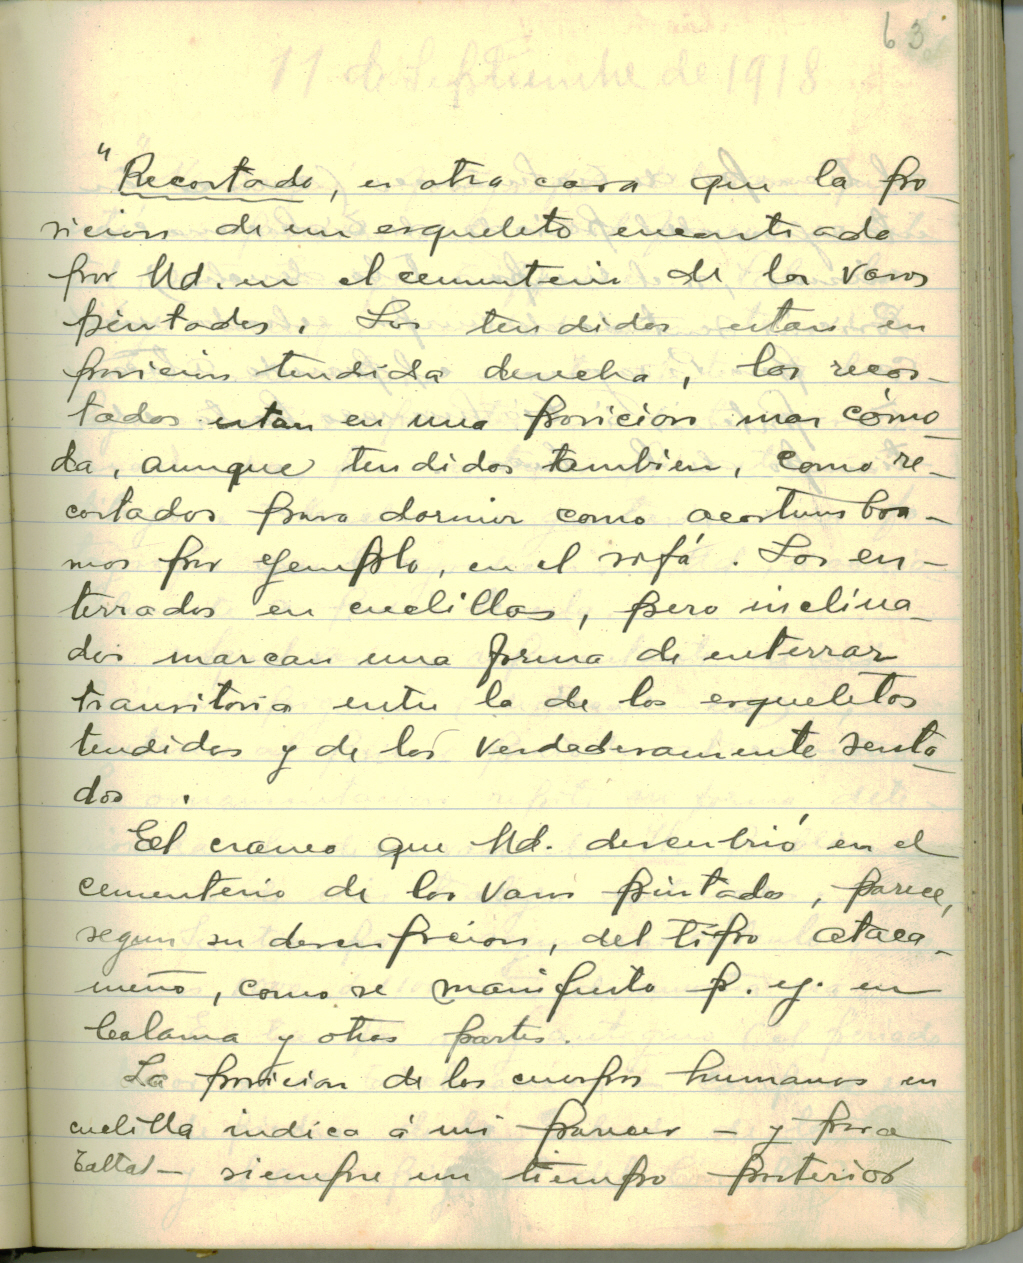 63
11 de Septiembre de 1918
"Recostado, es otra cosa que la po
sicion de un esqueleto encontrado
por Ud. en el cementerio de los vasos
pintados. Los tendidos estan en
posicion tendida derecha, los recos-
tados estan en una posicion mas cómo
da, aunque tendidos tambien, como re-
costados para dormir como acostumbra-
mos por ejemplo, en el sofá. Los en-
terrados en cuclillas, pero inclina
dos marcan una forma de enterrar
transitoria entre la de los esqueletos
tendidos y de los verdaderamente senta
dos.
El craneo que Ud. descubrió en el
cementerio de los vasos pintados, parece,
segun su descripcion, del tipo ataca-
meño, como se manifiesta p. ej. en
Calama y otras partes.
La posicion de los cuerpos humanos en
cuclilla indica á mi parecer - y para
Taltal - siempre un tiempo posterior